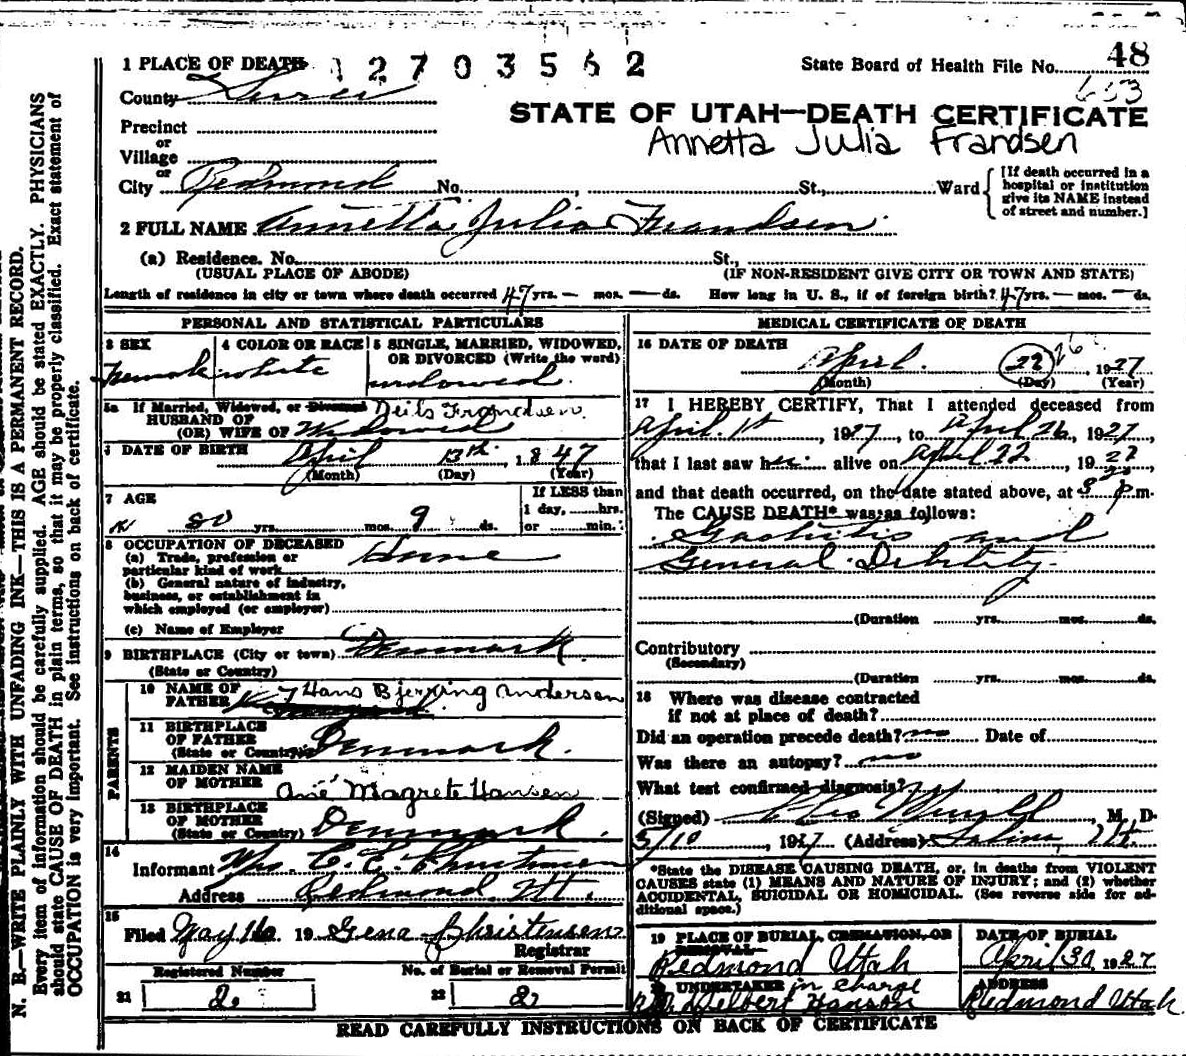 1 PLACE OF DEATH 12703562
State Board of Health File No. 48
653
County Sevier
STATE OF UTAH—DEATH CERTIFICATE
Annetta Julia Frandsen
Precinct
or
Village
or
City Redmond No. , St., Ward
[If death occurred in a
hospital or institution
give its NAME instead
of street and number.]
2 FULL NAME Annetta Julia Frandsen
(a) Residence. No. St.,
(USUAL PLACE OF ABODE) (IF NON-RESIDENT GIVE CITY OR TOWN AND STATE)
Length of residence in city or town where death occurred 47 yrs. — mos. — ds. How long in U. S., if of foreign birth? 47 yrs. — mos. — ds.
PERSONAL AND STATISTICAL PARTICULARS
3 SEX 4 COLOR OR RACE 5 SINGLE, MARRIED, WIDOWED,
OR DIVORCED (Write the word)
Female white widowed
5a If Married, Widowed, or Divorced Neils Frandsen
HUSBAND OF
(OR) WIFE OF Widowed
6 DATE OF BIRTH April 13th, 1847
(Month) (Day) (Year)
7 AGE If LESS than
1 day, hrs.
80 yrs. mos. 9 ds. or min.
8 OCCUPATION OF DECEASED
(a) Trade, profession or
particular kind of work Home
(b) General nature of industry,
business, or establishment in
which employed (or employer)
(c) Name of Employer
9 BIRTHPLACE (City or town) Denmark
(State or Country)
PARENTS
10 NAME OF
FATHER Hans Bjerring Andersen
11 BIRTHPLACE
OF FATHER
(State or Country) Denmark.
12 MAIDEN NAME
OF MOTHER Ane Magrete Hansen
13 BIRTHPLACE
OF MOTHER
(State or Country) Denmark.
14
Informant Mrs. C. E. Christensen
Address Redmond Ut.
15
Filed May 10 19 Gena Christensen
Registrar
Registered Number No. of Burial or Removal Permit
21 2. 22 2.
MEDICAL CERTIFICATE OF DEATH
16 DATE OF DEATH
April. 22 26, 1927
(Month) (Day) (Year)
17 I HEREBY CERTIFY, That I attended deceased from
April. 1st, 1927, to April 26, 1927,
that I last saw her alive on April 22, 1927,
and that death occurred, on the date stated above, at 3 p.m.
The CAUSE DEATH* was as follows:
Gastritis and
General Debility.
(Duration yrs. mos. ds.
Contributory
(Secondary)
(Duration yrs. mos. ds.
18 Where was disease contracted
if not at place of death?
Did an operation precede death? no Date of
Was there an autopsy? no
What test confirmed diagnosis?
(Signed) , M. D.
5/10, 1927 (Address) Salina, Ut.
*State the DISEASE CAUSING DEATH, or, in deaths from VIOLENT
CAUSES state (1) MEANS AND NATURE OF INJURY; and (2) whether
ACCIDENTAL, SUICIDAL OR HOMICIDAL. (See reverse side for ad-
ditional space.)
19 PLACE OF BURIAL, CREMATION, OR
REMOVAL DATE OF BURIAL
Redmond Utah April 30, 1927
20 UNDERTAKER in charge ADDRESS
Delbert Hanson Redmond Utah
READ CAREFULLY INSTRUCTIONS ON BACK OF CERTIFICATE
N. B.—WRITE PLAINLY WITH UNFADING INK—THIS IS A PERMANENT RECORD.
Every item of information should be carefully supplied. AGE should be stated EXACTLY. PHYSICIANS
should state CAUSE OF DEATH in plain terms, so that it may be properly classified. Exact statement of
OCCUPATION is very important. See instructions on back of certificate.